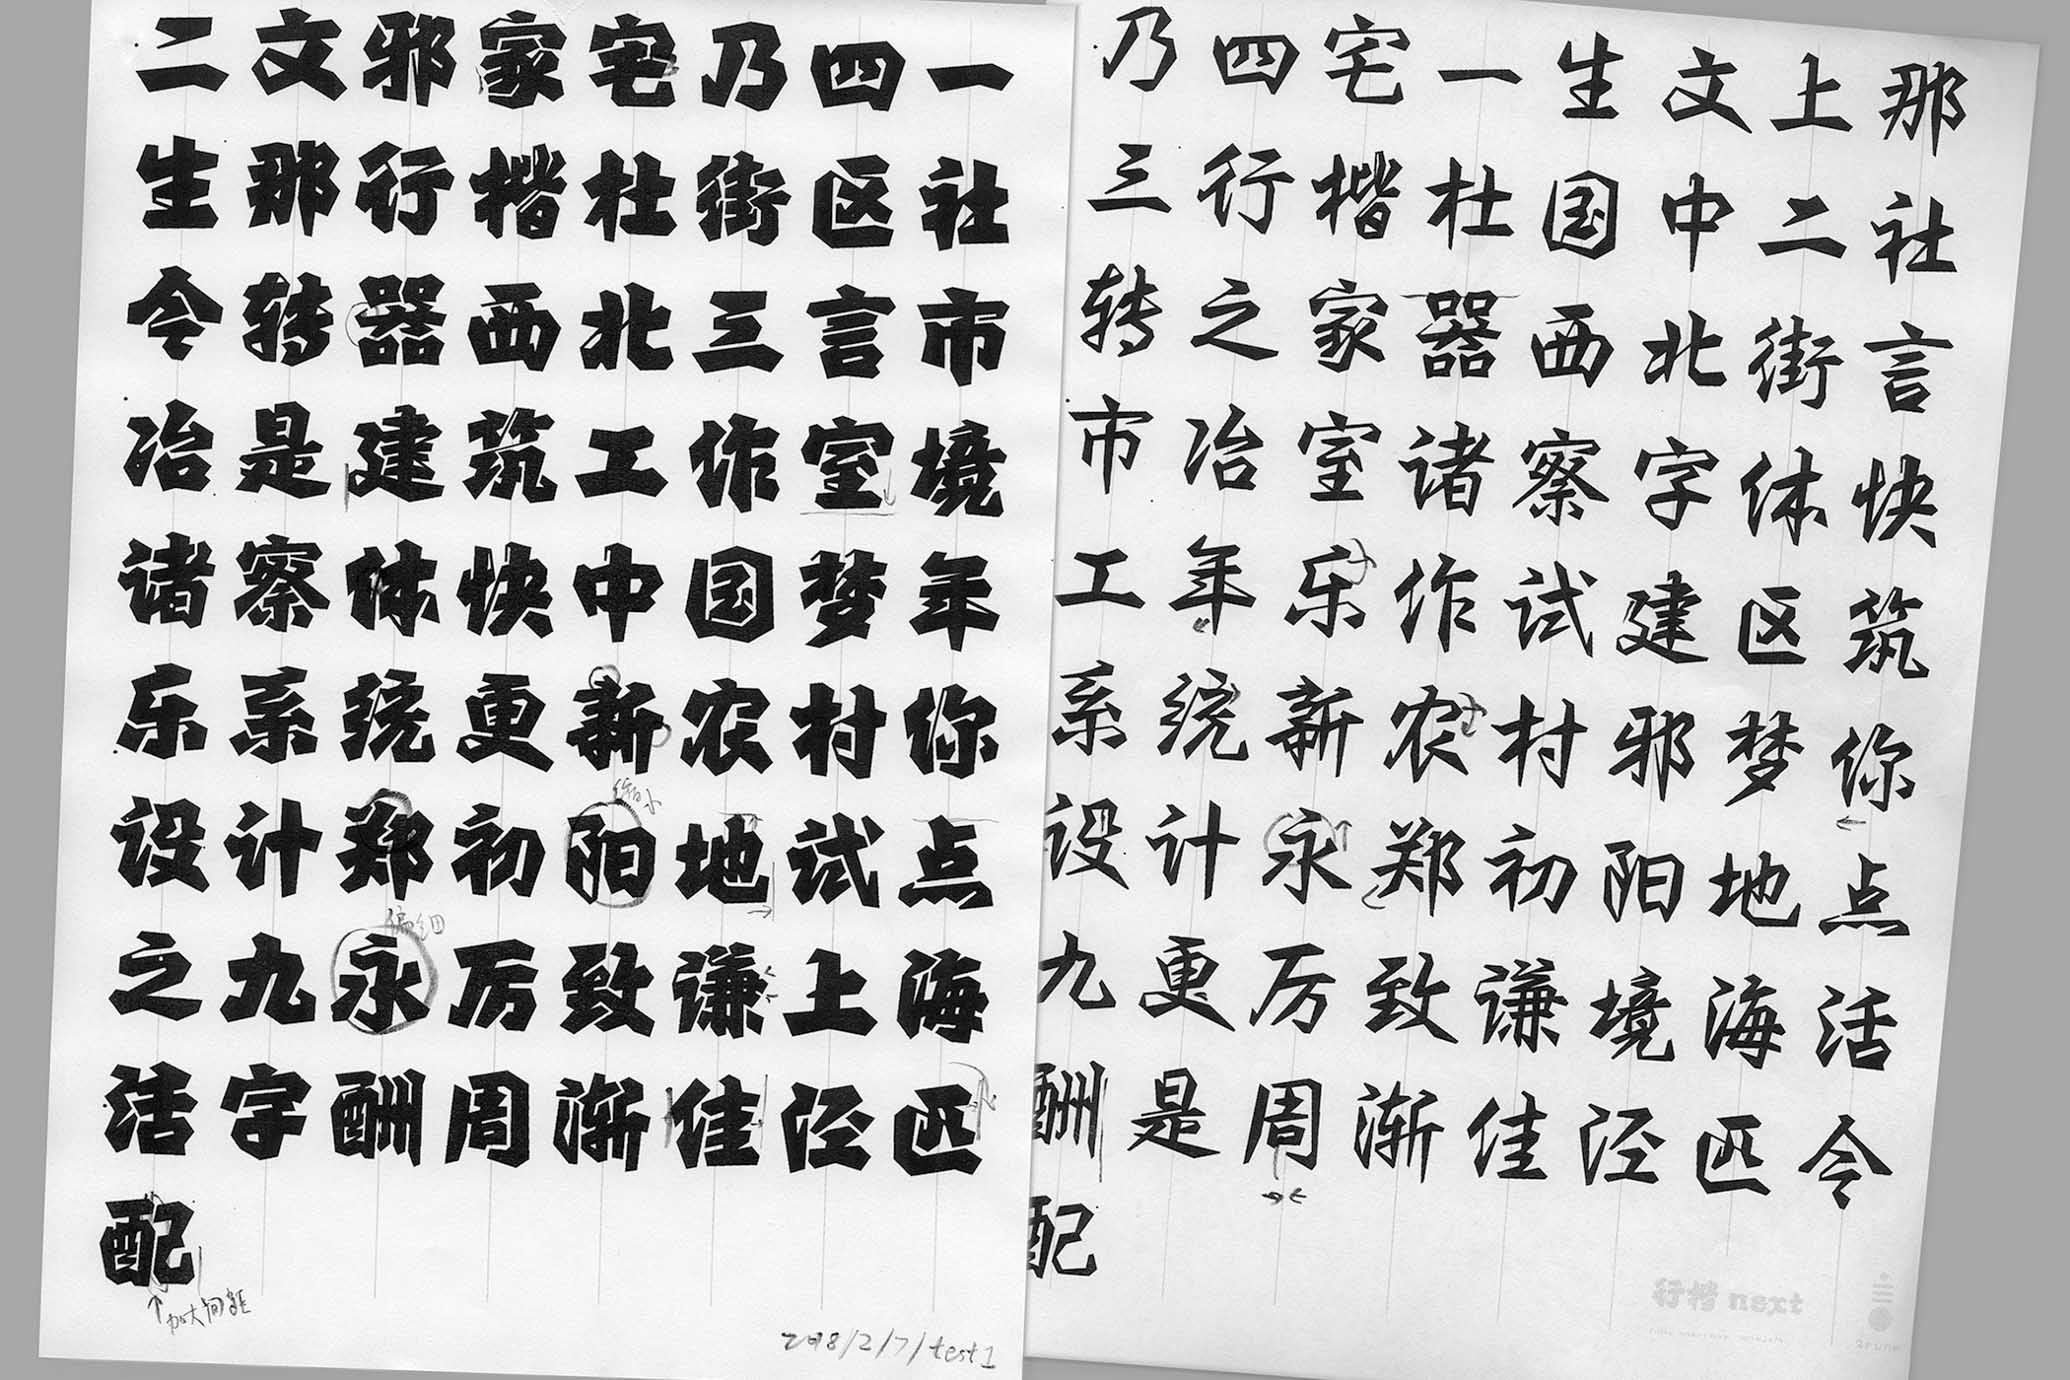 二文邪家宅乃四一
生那行楷杜街区社
令转器西北三言市
冶是建筑工作室境
诸察体快中国梦年
乐系统更新农村你
设计郑初阳地试点
之九永厉致谦上海
活字酬周渐佳泾匹
配
偏细
加大间距
2018/2/7/test1
乃四宅一生文上那
三行楷杜国中二社
转之家器西北街言
市冶室诸察字体快
工年乐作试建区筑
系统新农村邪梦你
设计永郑初阳地点
九更厉致谦境海活
酬是周渐佳泾匹令
配
行楷 next